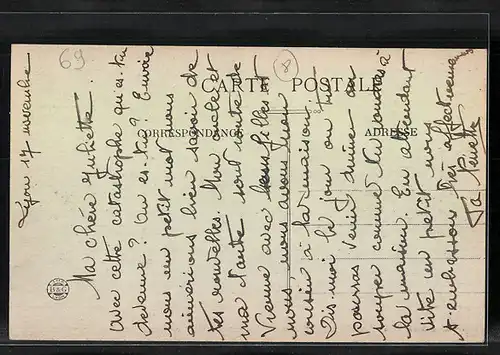 69
8
CARTE POSTALE
CORRESPONDANCE
ADRESSE
B&G
Lyon 17 novembre
Ma chère Juliette
avec cette catastrophe qu'es-tu
devenue? Où es-tu? Envoie
nous un petit mot nous
aimerions bien savoir de
tes nouvelles. Mon oncle et
ma tante sont route de
Vienne avec filles et
nous nous avons mon
cousin à la maison.
Dis-moi le jour ou tu
pourras venir dîner ou
souper comme tu voudras à
la maison. En attendant
vite un petit mot
Très affectueux
Ta